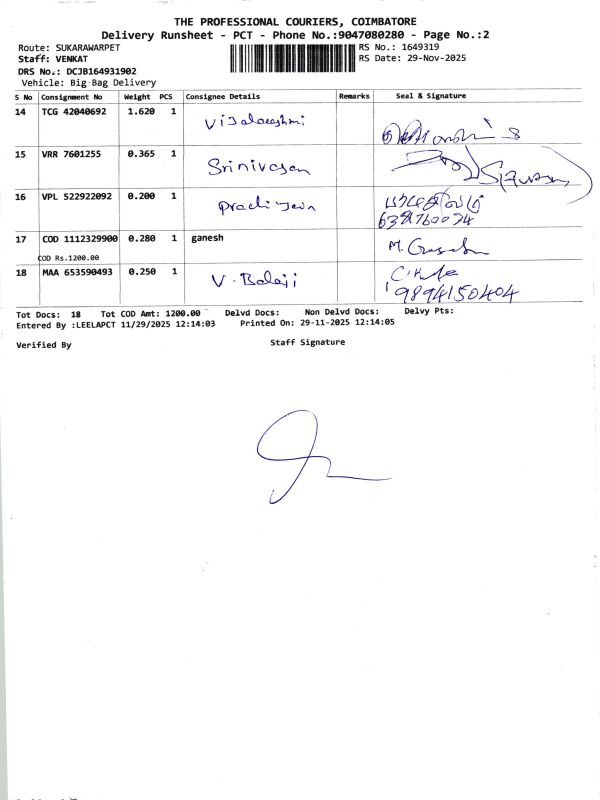 THE PROFESSIONAL COURIERS, COIMBATORE
Delivery Runsheet - PCT - Phone No.:9047080280 - Page No.:2
Route: SUKARAWARPET RS No.: 1649319
Staff: VENKAT RS Date: 29-Nov-2025
DRS No.: DCJB164931902
Vehicle: Big Bag Delivery
S No Consignment No Weight PCS Consignee Details Remarks Seal & Signature
14 TCG 42040692 1.620 1
15 VRR 7601255 0.365 1 Srinivasan
16 VPL 522922092 0.200 1
17 COD 1112329900 0.280 1 ganesh M. Ganesh
COD Rs.1200.00
18 MAA 653590493 0.250 1 V. Balaji
9894150404
Tot Docs: 18 Tot COD Amt: 1200.00 Delvd Docs: Non Delvd Docs: Delvy Pts:
Entered By :LEELAPCT 11/29/2025 12:14:03 Printed On: 29-11-2025 12:14:05
Verified By Staff Signature